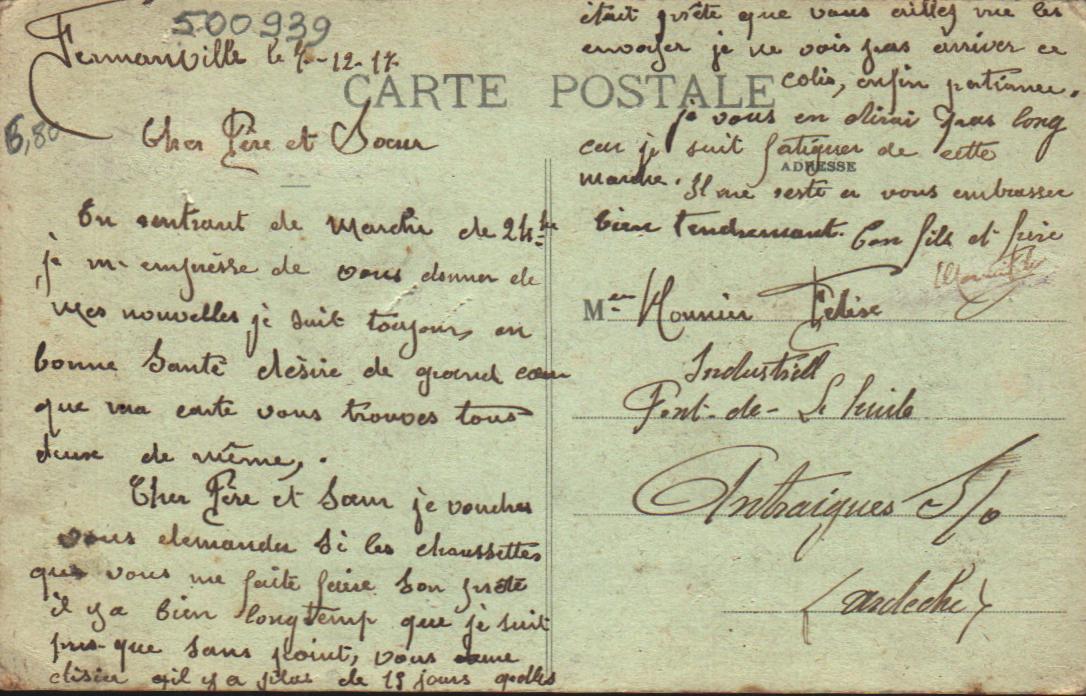 500939
Fermanville le 7-12-17
CARTE POSTALE
6,80
Cher Père et Soeur
En rentrant de Marche de 24 hre
je m'empresse de vous donner de
Mes nouvelles je suit toujours en
bonne Santé désire de grand coeur
que ma carte vous trouves tous
deux de même,.
Cher Père et Sœur je voudrer
vous demander si les chaussettes
que vous me faite faire son prête
il y a bien longtemp que je suit
presque sans point, vous
disiér qil y a plus de 15 jours qelles
était prête que vous aillez me les
envoyer je ne vois pas arriver ce
colis, enfin patiance.
je vous en dirai pas long
car je suit fatiguer de cette
ADRESSE
marche. Il me reste a vous embrasser
bien tendremant. Ton fils et frère
Meur Mounier Félix
Industriell
Pont-de- L huile
Antraigues S/o
(ardeche)